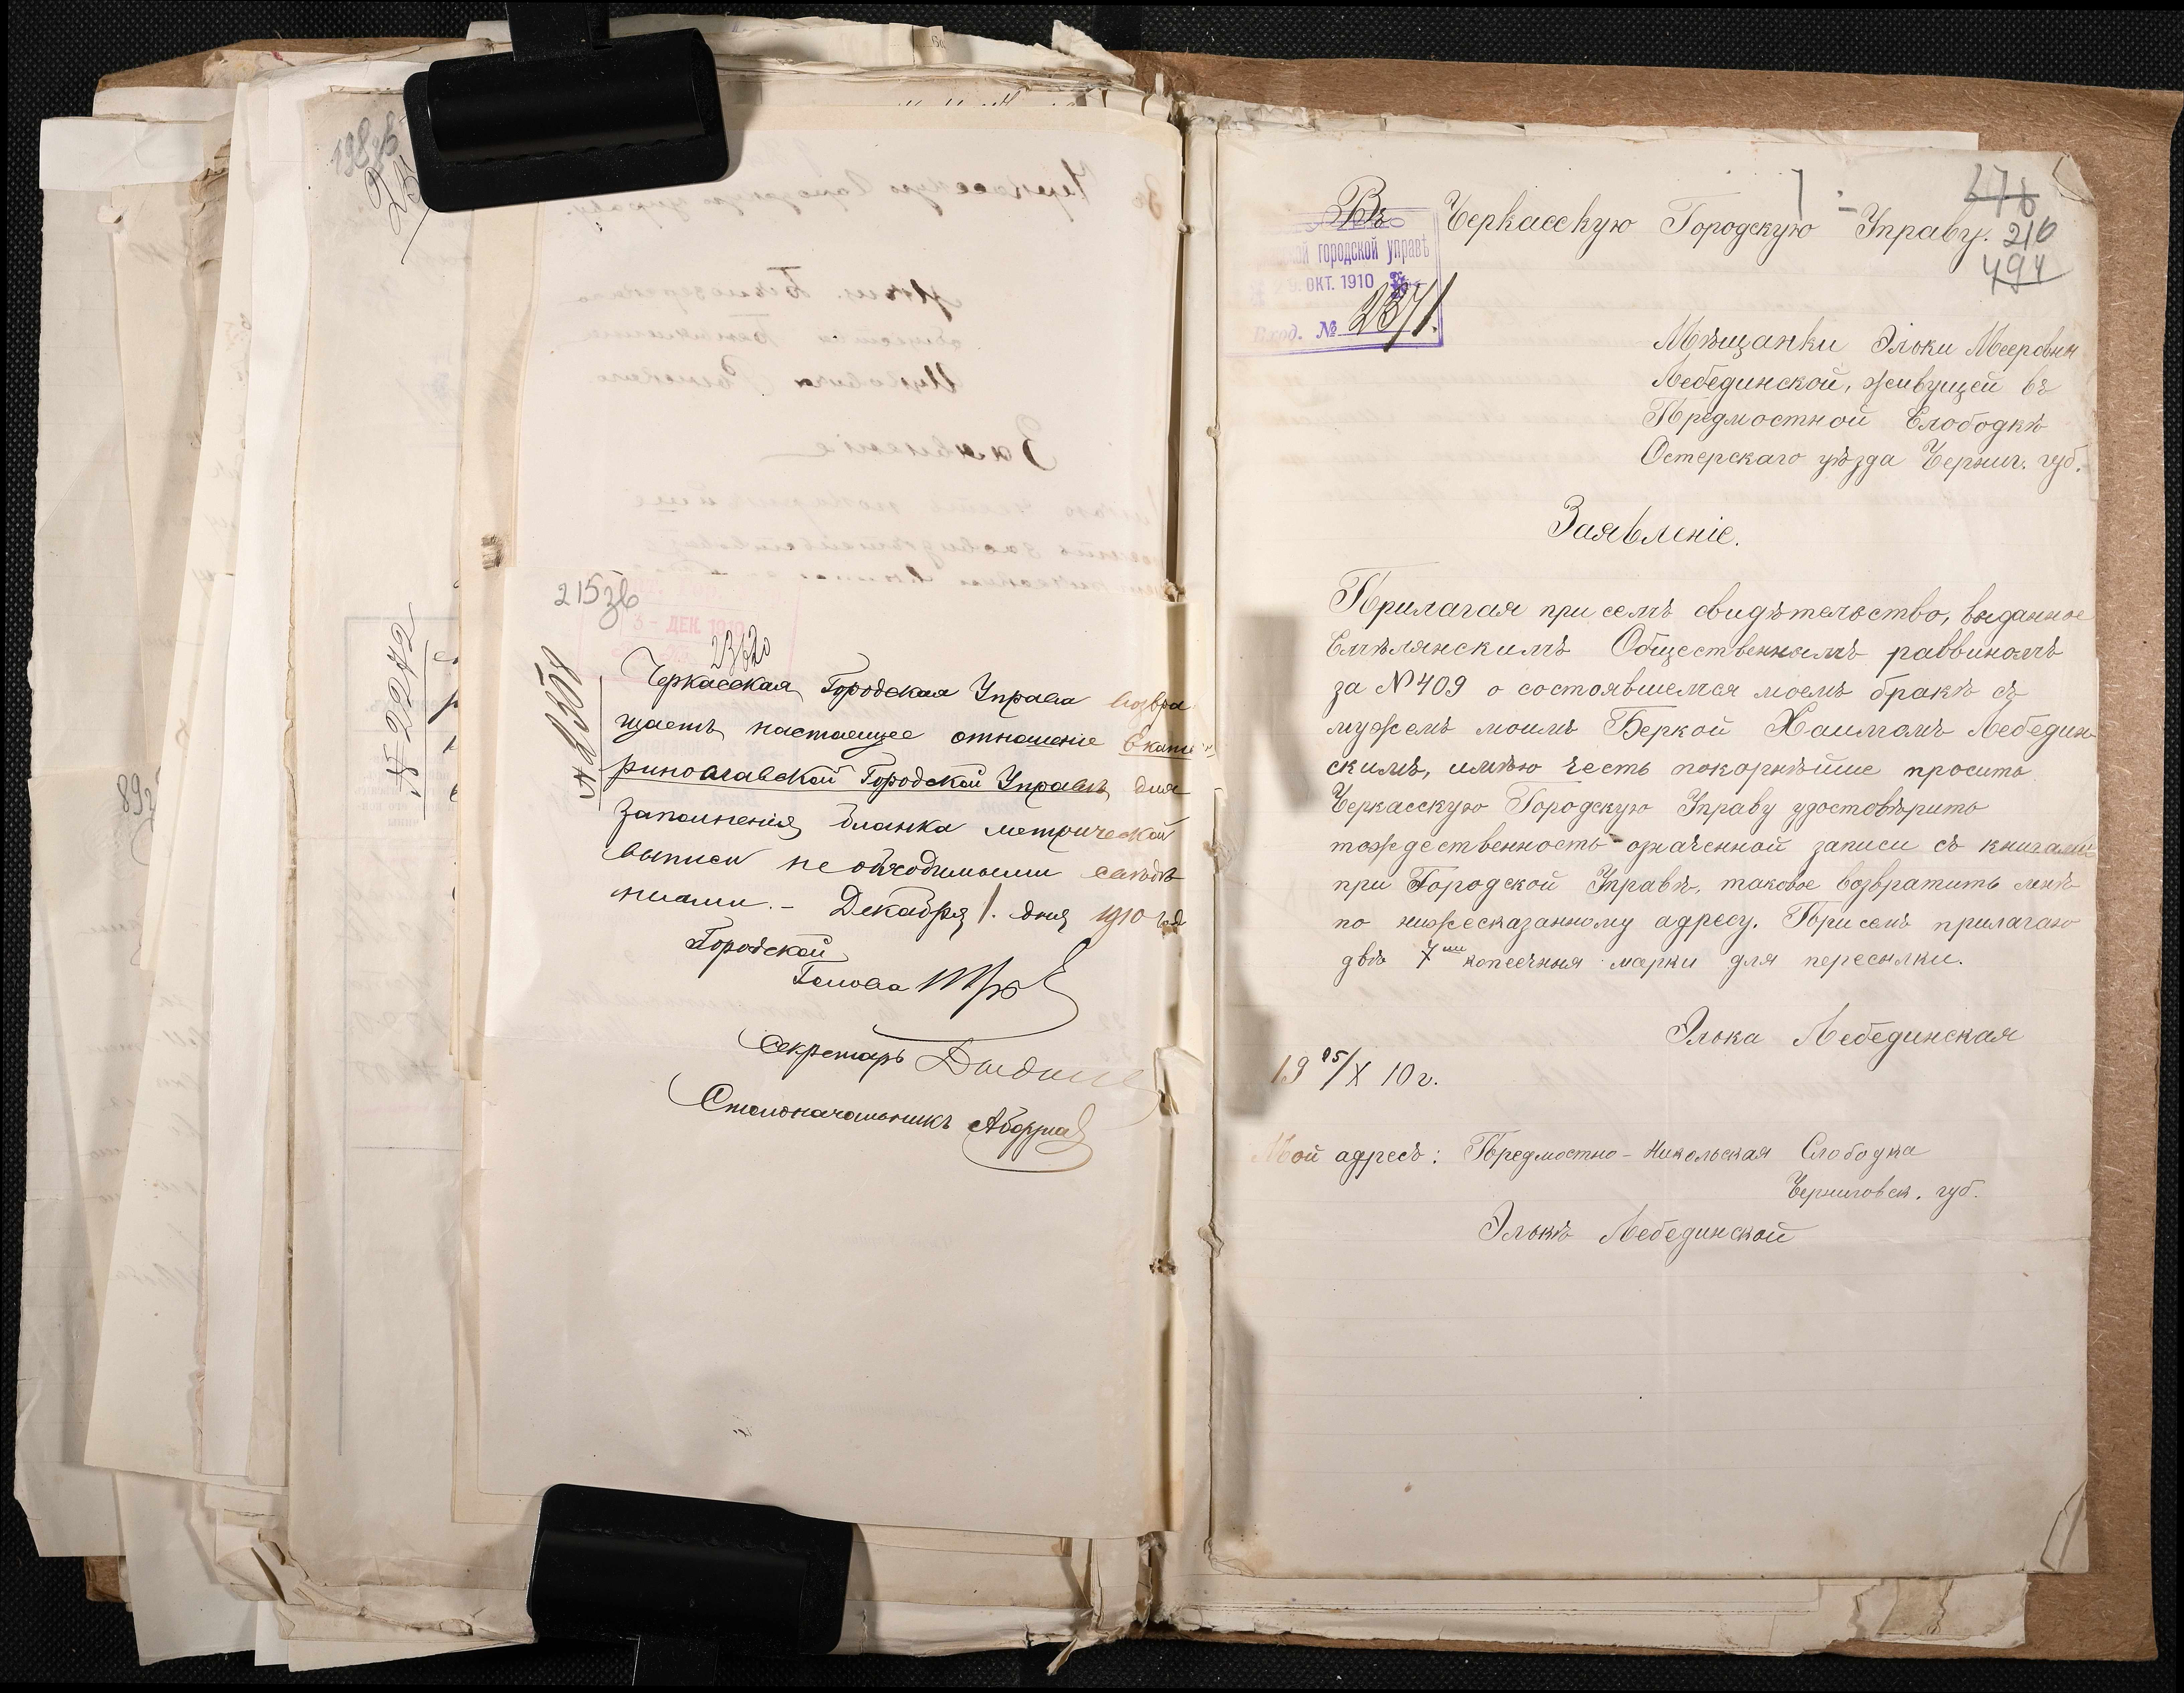 198 зв
№ 2272
215 зв
3 - ДЕК. 1910
23620
№ 2508
Черкасская Городская Управа возвра
щаетъ настоящее отношеніе Екате
ринославской Городской Управѣ для
заполненія бланка метрической
выписи необходимыми свѣдѣ
ніями. - Декабря 1. дня 1910 год
Городской
Голова
Секретарь
Столоначальникъ
678
Въ Черкасскую Городскую Управу.
216
494
городской управѣ
29. ОКТ. 1910
Вход. № 2371.
Мѣщанки Эльки Мееровны
Лебединской, живущей въ
Предмостной Слободкѣ
Остерскаго уѣзда Черниг. губ.
Заявленіе.
Прилагая при семъ свидѣтельство, выданное
Смѣлянскимъ Общественнымъ раввиномъ
за № 409 о состоявшемся моемъ бракѣ съ
мужемъ моимъ Беркой Хаимомъ Лебедин-
скимъ, имѣю честь покорнѣйше просить
Черкасскую Городскую Управу удостовѣрить
тождественность означенной записи съ книгами
при Городской Управѣ, таковое возвратить мнѣ
по нижесказанному адресу. При семъ прилагаю
двѣ 7ми копеечныя марки для пересылки.
Элька Лебединская
19 25/X 10 г.
Мой адресъ: Предмостно-Никольская Слободка
Черниговск. губ.
Элькѣ Лебединской